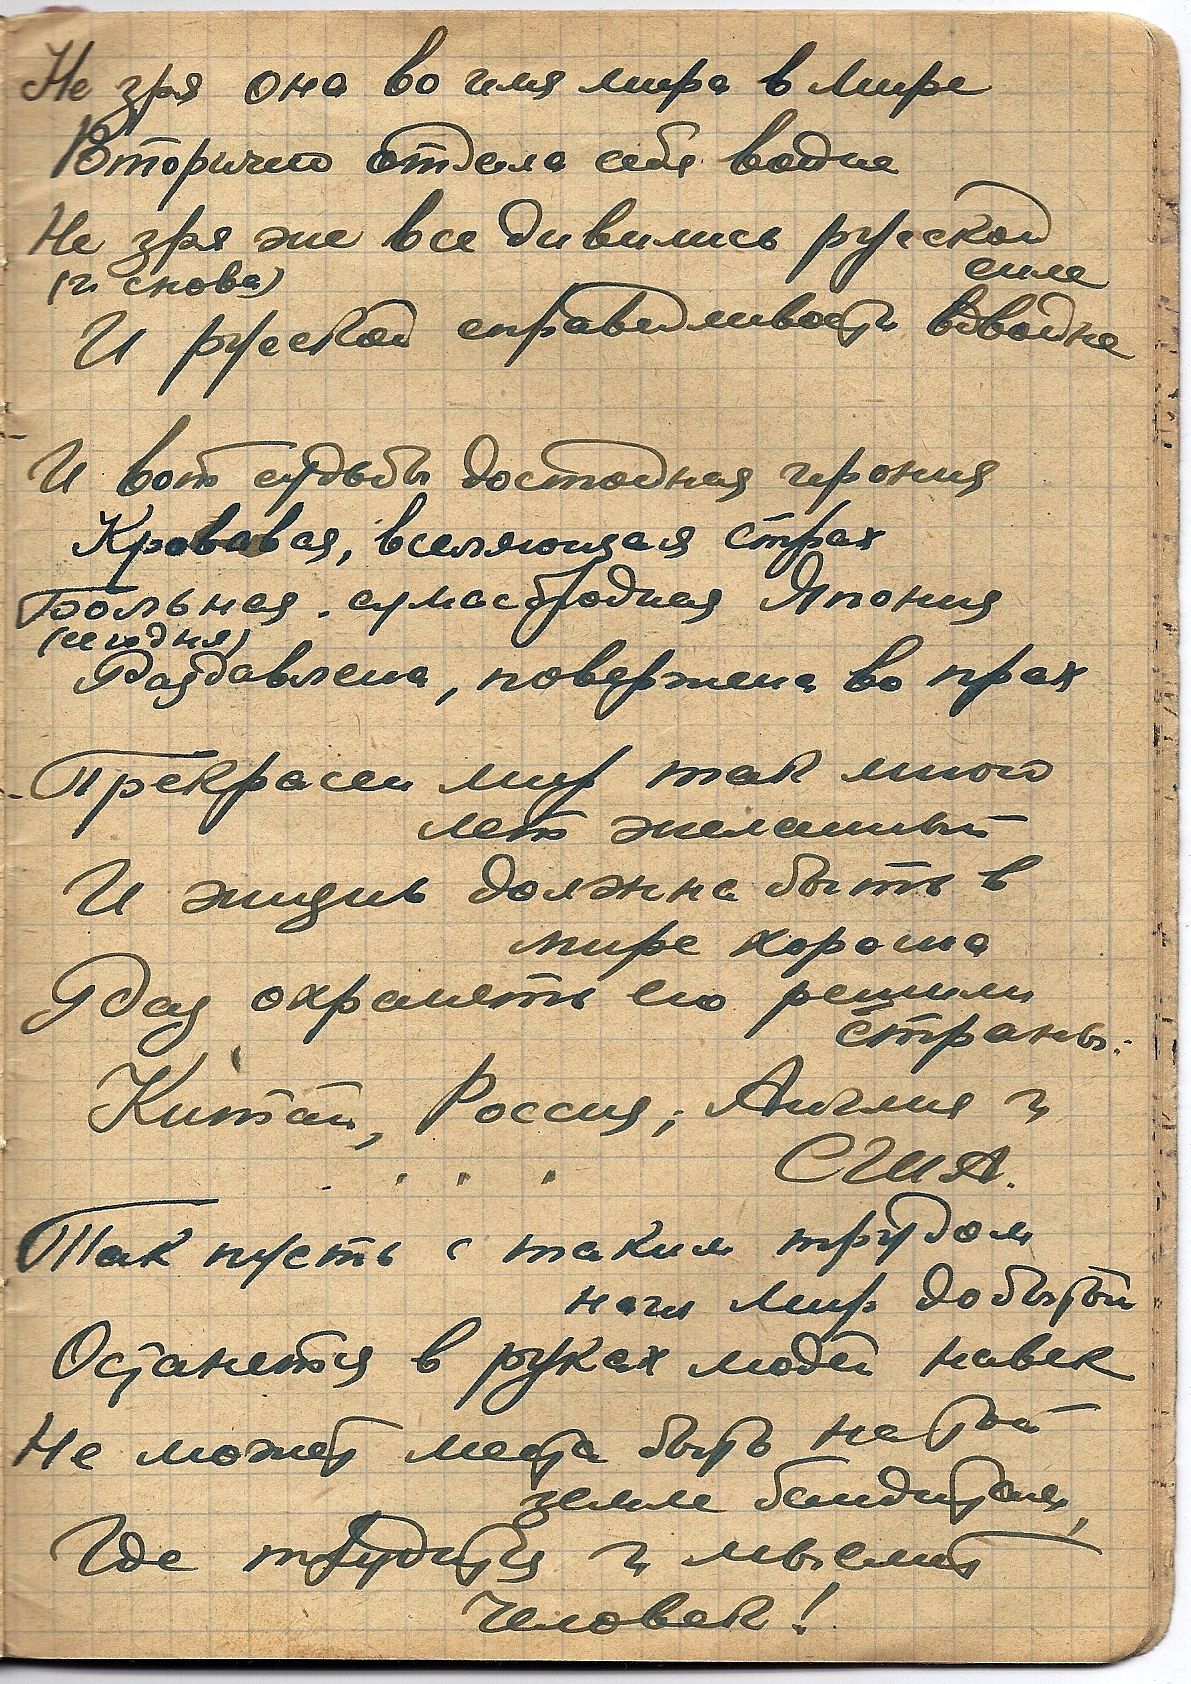 Не зря она во имя мира в мире
Вторично отдала себя войне
Не зря же все дивились русской
силе
(и снова)
И русской справедливости в войне
И вот судьбы достойная ирония
Кровавая, вселяющая страх
Больная, сумасбродная Япония
(сегодня)
Раздавлена, повержена во прах
Прекрасен мир так много
лет желанный
И жизнь должна быть в
мире хороша
Раз охранять его решили
страны:
Китай, Россия, Англия и
США.
Так пусть с таким трудом
нами мир добытый
Останется в руках людей навек
Не может места быть на той
земле бандитам,
Где трудится и мыслит
Человек!